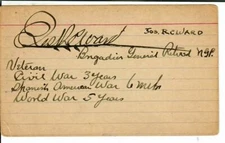 Jos. R. C. Ward
JOS. R.C. WARD
Brigadier General Retired N.G.P.
Veteran
Civil War 3 years
Spanish American War 6 mohs
World War 5 years